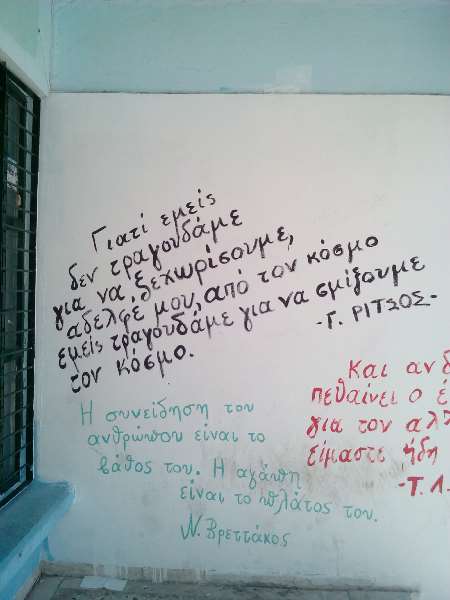 Γιατί εμείς
δεν τραγουδάμε
για να ξεχωρίσουμε,
αδελφέ μου, από τον κόσμο
εμείς τραγουδάμε για να σμίξουμε
τον κόσμο.
-Γ. ΡΙΤΣΟΣ-
Η συνείδηση του
ανθρώπου είναι το
βάθος του. Η αγάπη
είναι το πλάτος του.
Ν. Βρεττάκος
Και αν δ
πεθαίνει ο έ
για τον αλλ
είμαστε ήδη
-Τ.Λ.